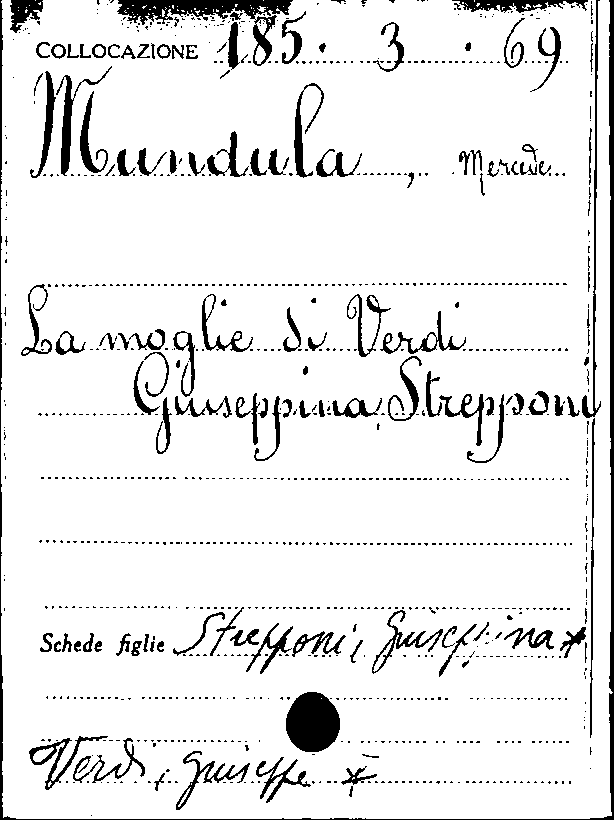 COLLOCAZIONE 185 · 3 · 69
Mundula, Mercede
La moglie di Verdi
Giuseppina Strepponi
Schede figlie Strepponi, Giuseppina *
Verdi, Giuseppe *